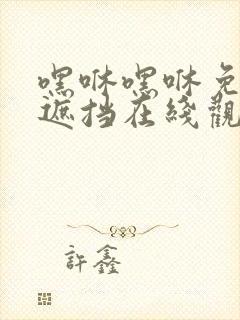 嘿咻嘿咻免
遮挡在线觀
許鑫